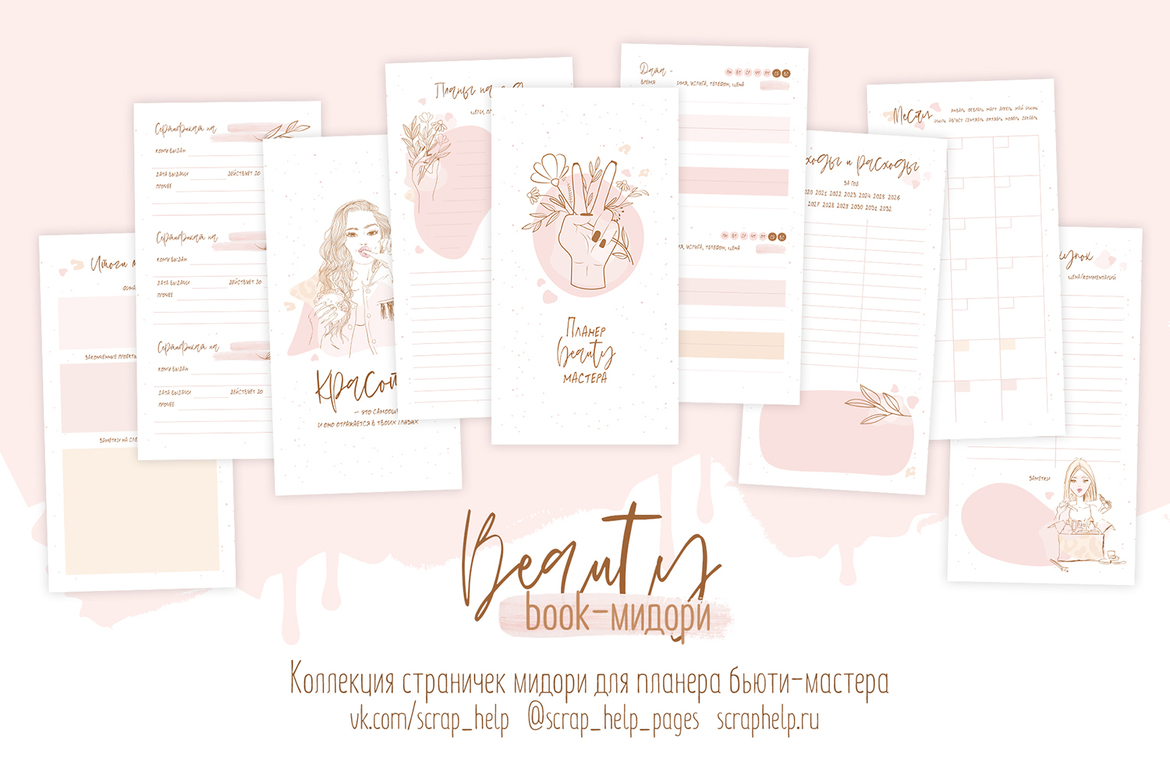 Итоги
Сертификат на
КОМУ ВЫДАН
ДАТА ВЫДАЧИ ДЕЙСТВУЕТ ДО
ПРОЧЕЕ
Сертификат на
КОМУ ВЫДАН
ДАТА ВЫДАЧИ ДЕЙСТВУЕТ ДО
ПРОЧЕЕ
Сертификат на
КОМУ ВЫДАН
ДАТА ВЫДАЧИ ДЕЙСТВУЕТ ДО
ПРОЧЕЕ
— ЭТО
И ОНО ОТРАЖАЕТСЯ В ТВОИХ ГЛАЗАХ
Планы на
Планер
beauty
мастера
Дата -
ВРЕМЯ ИМЯ, УСЛУГА, ТЕЛЕФОН, ЦЕНА
УСЛУГА, ТЕЛЕФОН, ЦЕНА
и расходы
ЗА ГОД
2021 2022 2023 2024 2025 2026
2027 2028 2029 2030 2031 2032
Месяц
ЯНВАРЬ ФЕВРАЛЬ МАРТ АПРЕЛЬ МАЙ ИЮНЬ
ИЮЛЬ АВГУСТ СЕНТЯБРЬ ОКТЯБРЬ НОЯБРЬ ДЕКАБРЬ
ЦЕНА/КОММЕНТАРИЙ
ЗАМЕТКИ
Beauty
book-мидори
Коллекция страничек мидори для планера бьюти-мастера
vk.com/scrap_help @scrap_help_pages scraphelp.ru